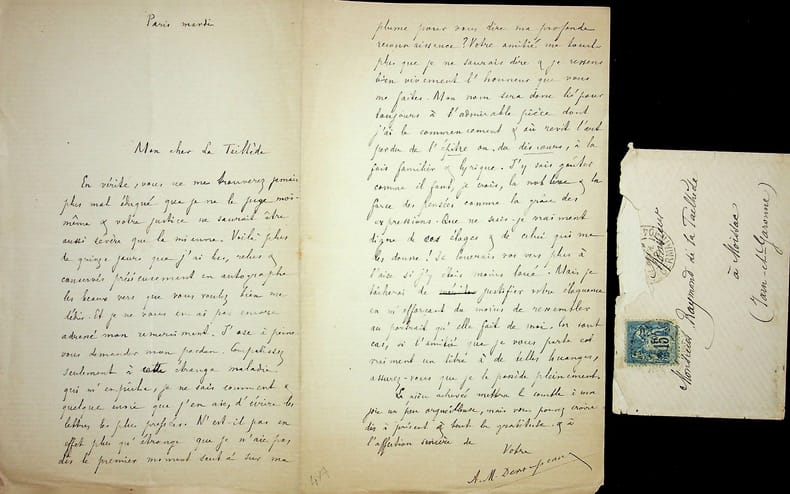 Paris mardi
Mon cher La Tailhède
En vérité, vous ne me trouverez jamais
plus mal éduqué que je ne le juge moi-
même & votre justice ne saurait être
aussi sévère que la mienne. Voilà plus
de quinze jours que j'ai lus, relus &
conservés précieusement en autographe
les beaux vers que vous voulez bien me
dédier. Et je ne vous en ai pas encore
adressé mon remerciment. J'ose à peine
vous demander mon pardon. Compatissez
seulement à cette étrange maladie
qui m'empêche, je ne sais comment &
quelque envie que j'en aie, d'écrire les
lettres les plus pressées. N'est-il pas en
effet plus qu'étrange que je n'aie pas
dès le premier moment sauté sur ma
plume pour vous dire ma profonde
reconnaissance? Votre amitié me touche
plus que je ne saurais dire & je ressens
bien vivement l'honneur que vous
me faites. Mon nom sera donc lié pour
toujours à l'admirable pièce dont
j'ai le commencement & où revit l'art
perdu de l'épître ou du discours, à la
fois familier & lyrique. J'y sais goûter
comme il faut, je crois, la & la
force des pensées comme la grâce des
expressions. Que ne suis-je vraiment
digne de ces éloges & de celui qui me
les donne! Je louerais vos vers plus à
l'aise si j'y étais moins loué. Mais je
tâcherai de justifier votre éloquence
en m'efforçant du moins de ressembler
au portrait qu'elle fait de moi. En tout
cas, si l'amitié que je vous porte est
vraiment un titre à de telles louanges,
assurez-vous que je le possède pleinement.
Le mettra le comble à ma
joie un peu orgueilleuse, mais vous pouvez croire
dès à présent à toute la gratitude & à
l'affection sincère de
Votre
A. M. Desrousseaux
Monsieur
Monsieur Raymond de la Tailhède
à Moissac
(Tarn-et-Garonne)
15